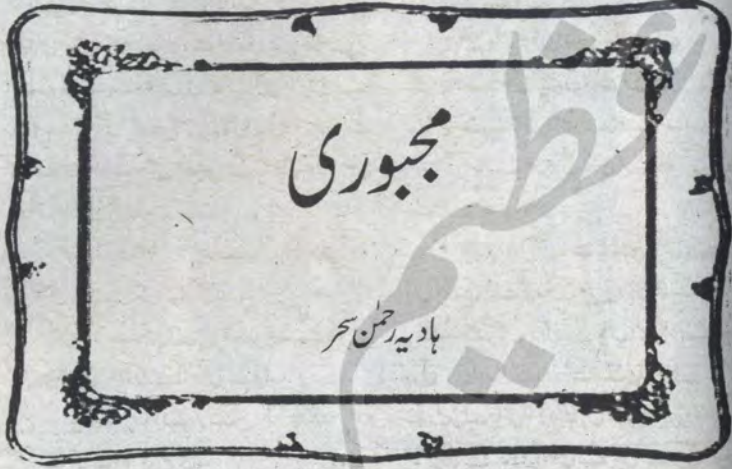 مجبوری
ہادیہ رحمٰن سحر
عظیم